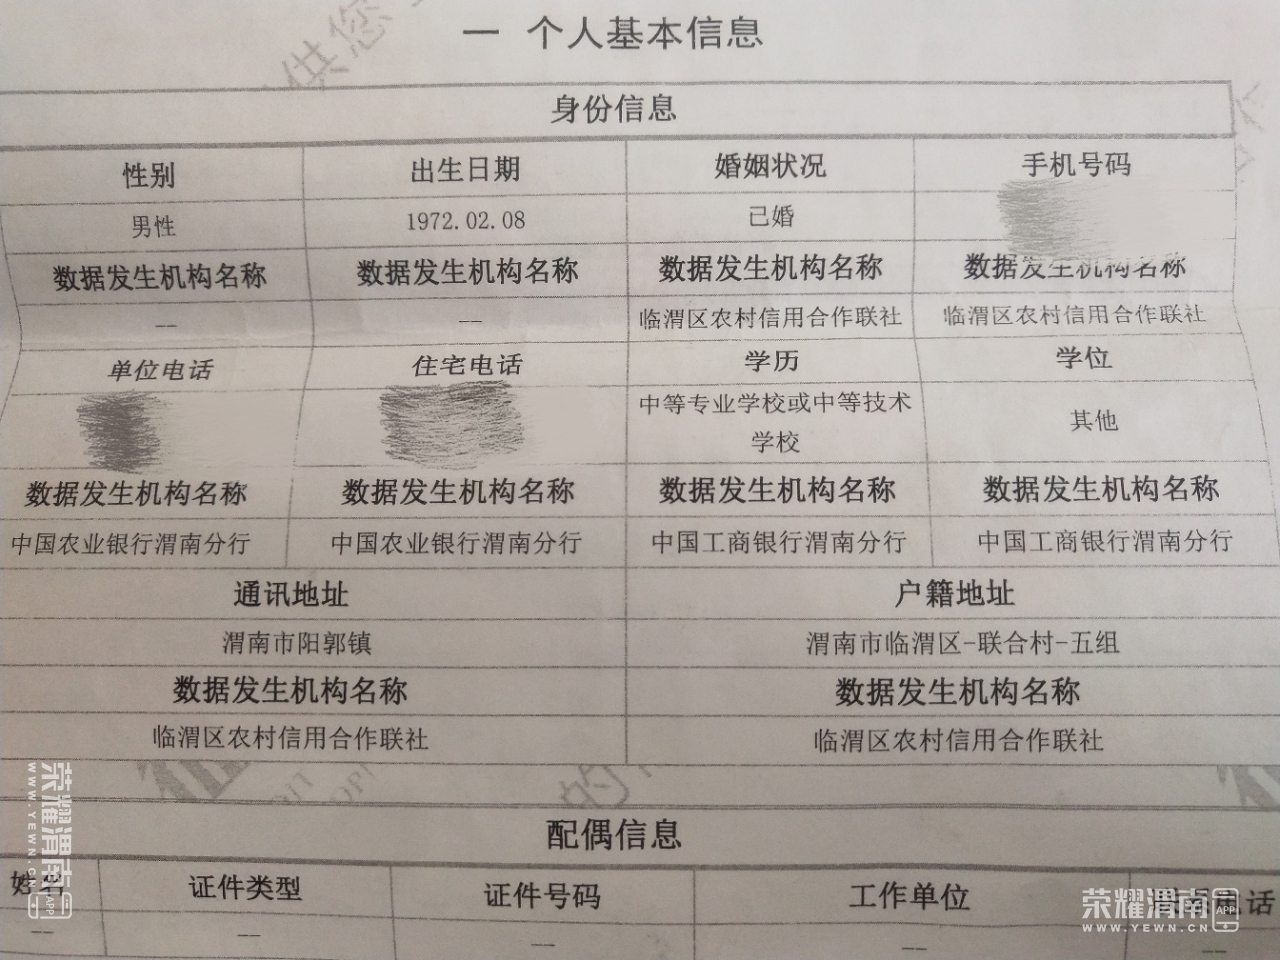 供您
一 个人基本信息
身份信息
性别 出生日期 婚姻状况 手机号码
男性 1972.02.08 已婚
数据发生机构名称 数据发生机构名称 数据发生机构名称 数据发生机构名称
-- -- 临渭区农村信用合作联社 临渭区农村信用合作联社
单位电话 住宅电话 学历 学位
中等专业学校或中等技术
学校 其他
数据发生机构名称 数据发生机构名称 数据发生机构名称 数据发生机构名称
中国农业银行渭南分行 中国农业银行渭南分行 中国工商银行渭南分行 中国工商银行渭南分行
通讯地址 户籍地址
渭南市阳郭镇 渭南市临渭区-联合村-五组
数据发生机构名称 数据发生机构名称
临渭区农村信用合作联社 临渭区农村信用合作联社
的
配偶信息
姓名 证件类型 证件号码 工作单位 电话
-- -- -- -- --
荣耀渭南 APP
WWW.YEWN.CN
荣耀渭南 APP
WWW.YEWN.CN